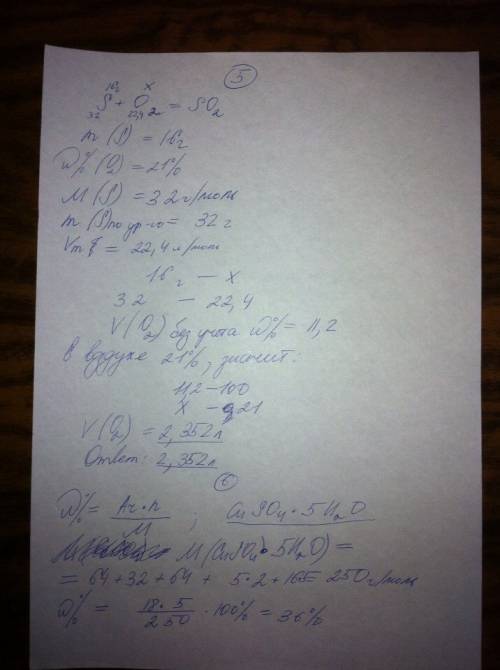 5
16г x
S + O2 = SO2
32 22,4
m (S) = 16г
W% (O2) = 21%
M (S) = 32 г/моль
m (S) по ур-ю = 32 г
Vm = 22,4 л/моль
16 г — x
32 — 22,4
V (O2) без учета W% = 11,2
В вдухе 21%, значит:
11,2 — 100
x — 21
V (O2) = 2,352л
Ответ: 2,352л
6
W% = Ar·n / M ; CuSO4 · 5H2O
M (CuSO4 · 5H2O) =
= 64 + 32 + 64 + 5·2 + 16·5 = 250 г/моль
W% = 18·5 / 250 · 100% = 36%